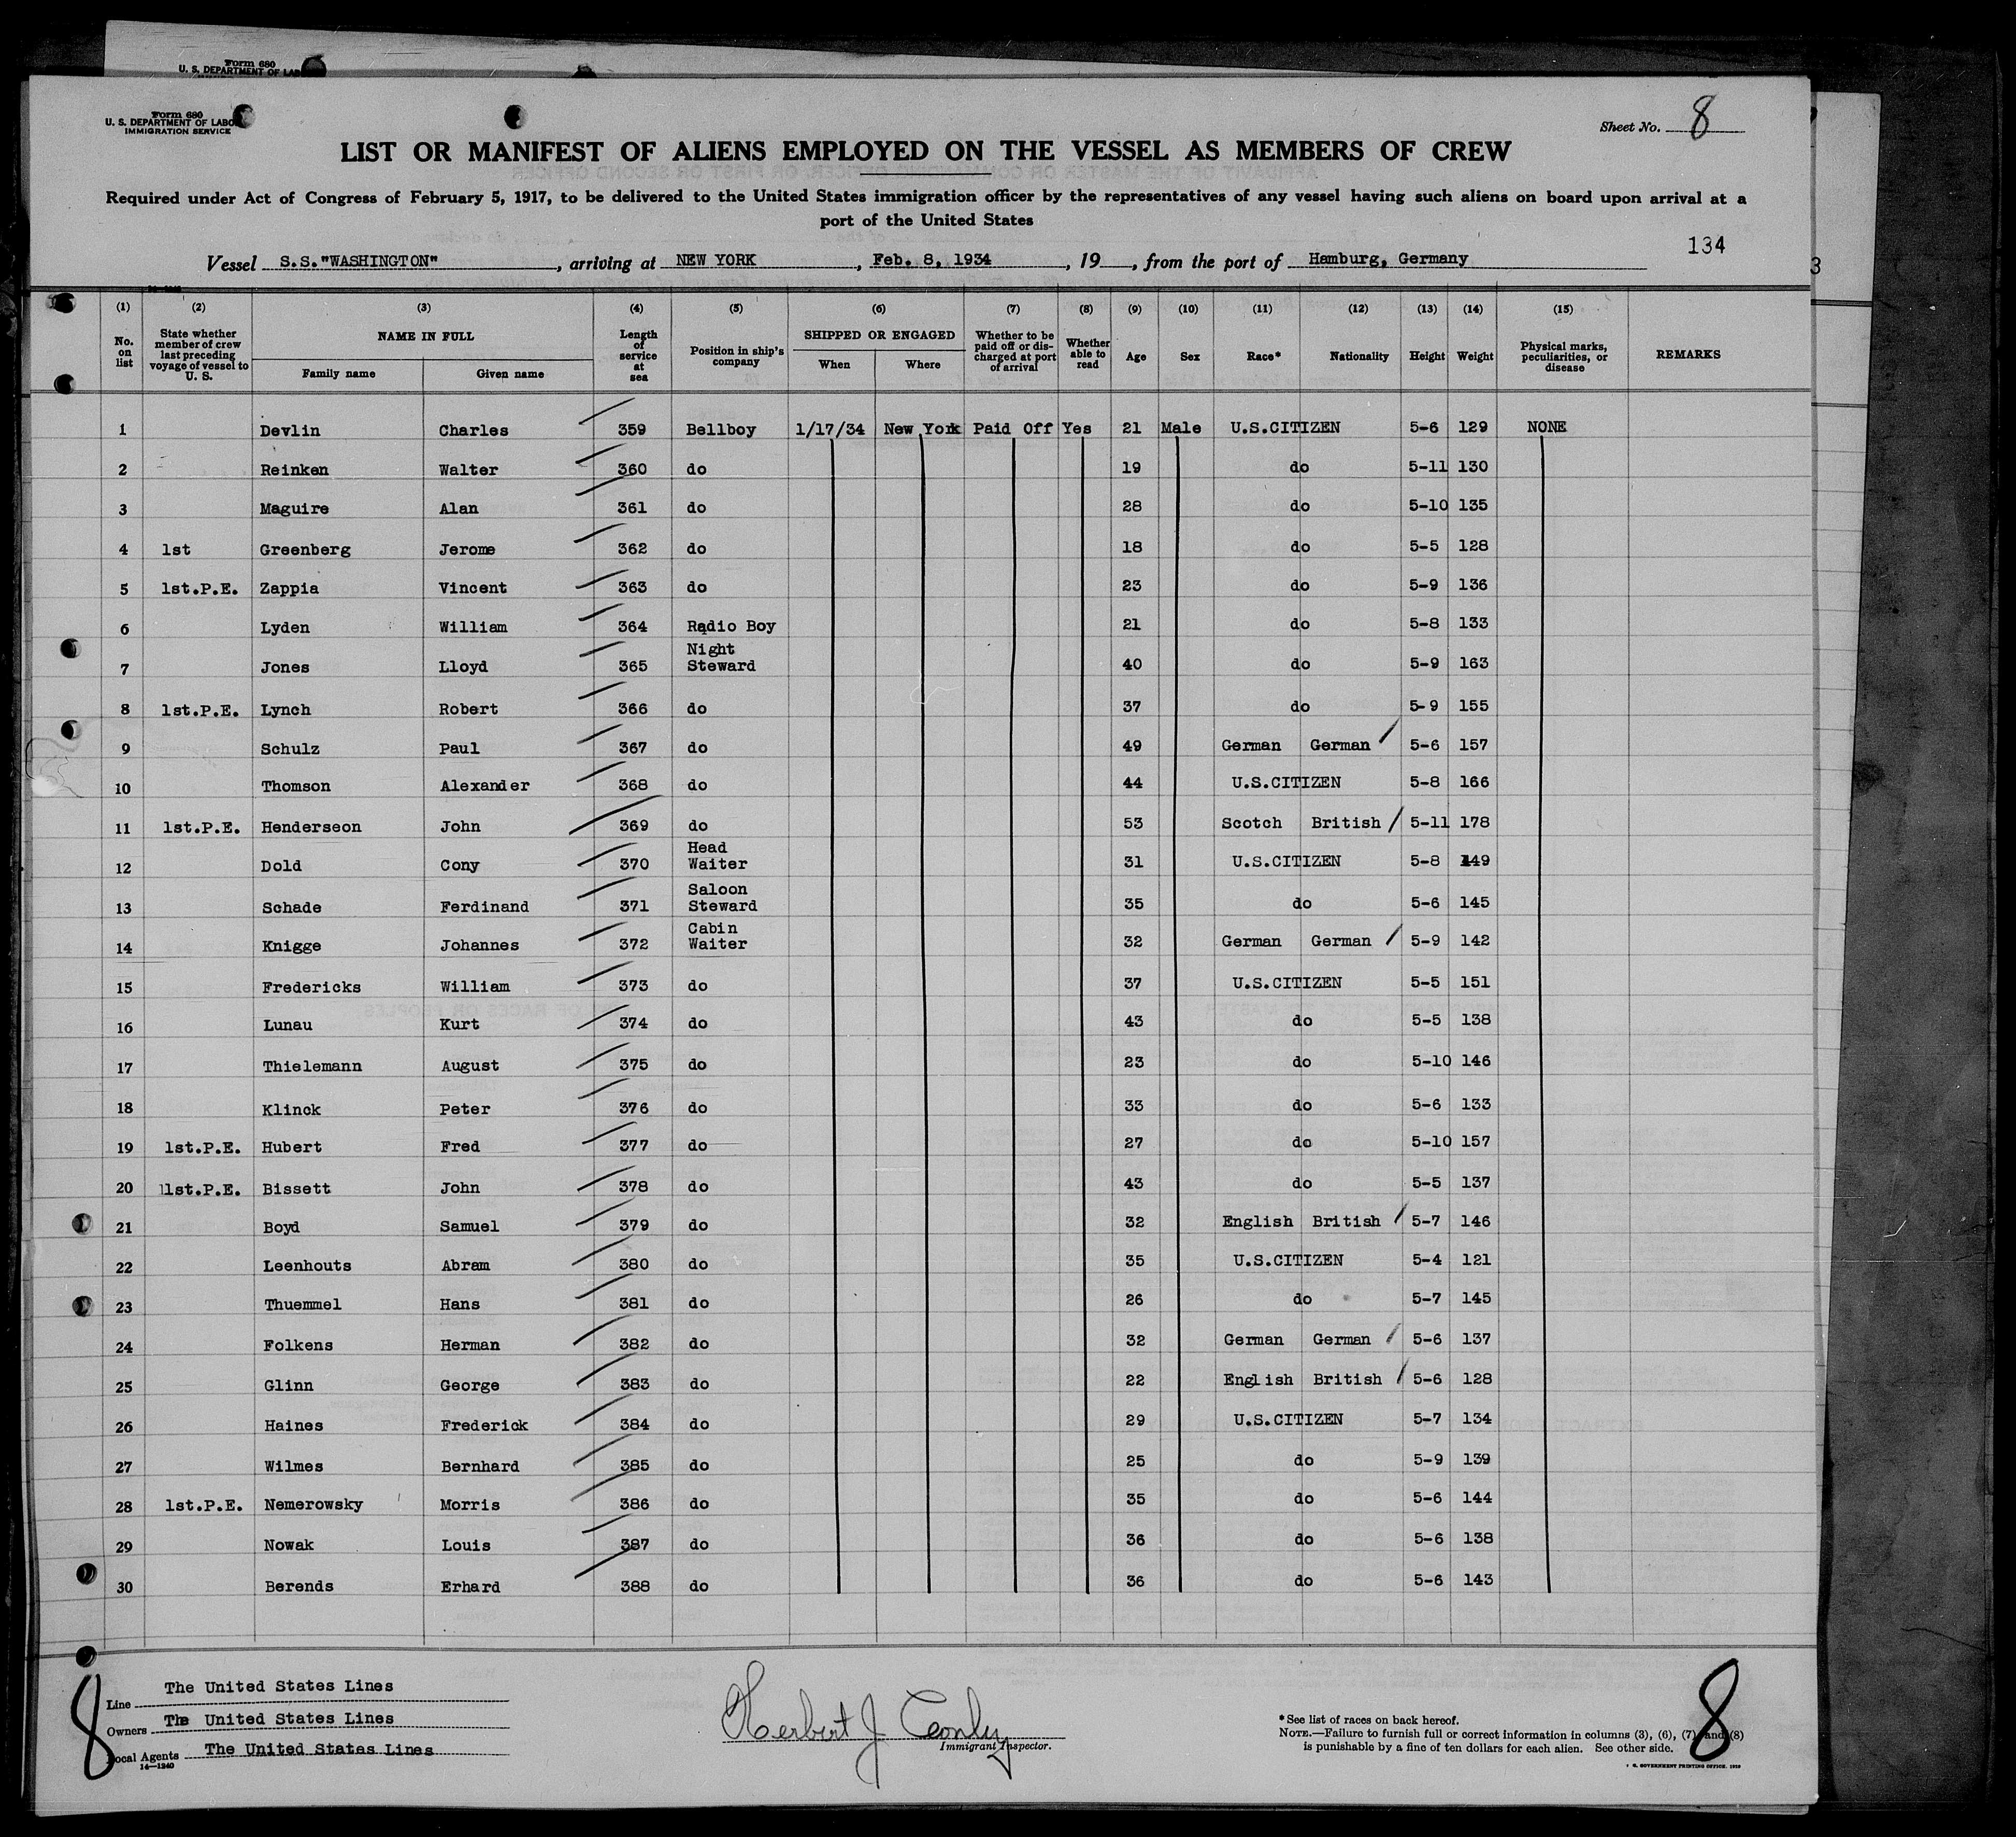 Form 680
U. S. DEPARTMENT OF LA
Form 680
U. S. DEPARTMENT OF LABO
IMMIGRATION SERVICE
Sheet No. 8
LIST OR MANIFEST OF ALIENS EMPLOYED ON THE VESSEL AS MEMBERS OF CREW
Required under Act of Congress of February 5, 1917, to be delivered to the United States immigration officer by the representatives of any vessel having such aliens on board upon arrival at a
port of the United States
134
Vessel S.S."WASHINGTON", arriving at NEW YORK, Feb. 8, 1934, 19, from the port of Hamburg, Germany
3
(1) (2) (3) (4) (5) (6) (7) (8) (9) (10) (11) (12) (13) (14) (15)
No. on list State whether member of crew last preceding voyage of vessel to U. S. NAME IN FULL Family name Given name Length of service at sea Position in ship's company SHIPPED OR ENGAGED When Where Whether to be paid off or discharged at port of arrival Whether able to read Age Sex Race* Nationality Height Weight Physical marks, peculiarities, or disease REMARKS
1 Devlin Charles 359 Bellboy 1/17/34 New York Paid Off Yes 21 Male U.S.CITIZEN 5-6 129 NONE
2 Reinken Walter 360 do 19 do 5-11 130
3 Maguire Alan 361 do 28 do 5-10 135
4 1st Greenberg Jerome 362 do 18 do 5-5 128
5 1st.P.E. Zappia Vincent 363 do 23 do 5-9 136
6 Lyden William 364 Radio Boy 21 do 5-8 133
7 Jones Lloyd 365 Night Steward 40 do 5-9 163
8 1st.P.E. Lynch Robert 366 do 37 do 5-9 155
9 Schulz Paul 367 do 49 German German 5-6 157
10 Thomson Alexander 368 do 44 U.S.CITIZEN 5-8 166
11 1st.P.E. Henderseon John 369 do 53 Scotch British 5-11 178
12 Dold Cony 370 Head Waiter 31 U.S.CITIZEN 5-8 149
13 Schade Ferdinand 371 Saloon Steward 35 do 5-6 145
14 Knigge Johannes 372 Cabin Waiter 32 German German 5-9 142
15 Fredericks William 373 do 37 U.S.CITIZEN 5-5 151
16 Lunau Kurt 374 do 43 do 5-5 138
17 Thielemann August 375 do 23 do 5-10 146
18 Klinck Peter 376 do 33 do 5-6 133
19 1st.P.E. Hubert Fred 377 do 27 do 5-10 157
20 1st.P.E. Bissett John 378 do 43 do 5-5 137
21 Boyd Samuel 379 do 32 English British 5-7 146
22 Leenhouts Abram 380 do 35 U.S.CITIZEN 5-4 121
23 Thuemmel Hans 381 do 26 do 5-7 145
24 Folkens Herman 382 do 32 German German 5-6 137
25 Glinn George 383 do 22 English British 5-6 128
26 Haines Frederick 384 do 29 U.S.CITIZEN 5-7 134
27 Wilmes Bernhard 385 do 25 do 5-9 139
28 1st.P.E. Nemerowsky Morris 386 do 35 do 5-6 144
29 Nowak Louis 387 do 36 do 5-6 138
30 Berends Erhard 388 do 36 do 5-6 143
8
Line The United States Lines
Owners The United States Lines
Local Agents The United States Lines
14—1240
Herbert J
Immigrant Inspector.
*See list of races on back hereof.
NOTE.—Failure to furnish full or correct information in columns (3), (6), (7) and (8)
is punishable by a fine of ten dollars for each alien. See other side.
8
GOVERNMENT PRINTING OFFICE